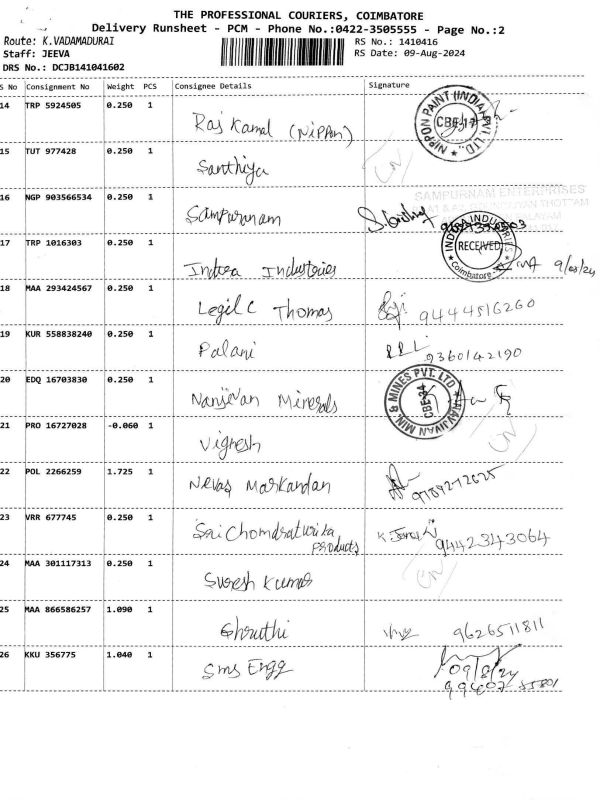 THE PROFESSIONAL COURIERS, COIMBATORE
Delivery Runsheet - PCM - Phone No.:0422-3505555 - Page No.:2
Route: K.VADAMADURAI RS No.: 1410416
Staff: JEEVA RS Date: 09-Aug-2024
DRS No.: DCJB141041602
S No Consignment No Weight PCS Consignee Details Signature
14 TRP 5924505 0.250 1
Raj Kamal (Nippon)
NIPPON PAINT (INDIA) PVT. LTD.
CBE-17
15 TUT 977428 0.250 1
Santhiya CN
16 NGP 903566534 0.250 1
Sampurnam
SAMPURNAM ENTERPRISES
17 TRP 1016303 0.250 1
Indira Industries
INDIRA INDUSTRIES
RECEIVED
Coimbatore
9/08/24
18 MAA 293424567 0.250 1
Legil C Thomas 9444516260
19 KUR 558838240 0.250 1
Palani 9360142190
20 EDQ 16703830 0.250 1
Nanjivan Minerals
NAVJIVAN MIN. & MINES PVT. LTD
CBE-34
21 PRO 16727028 -0.060 1
Vignesh CN
22 POL 2266259 1.725 1
Nevas Markandan
23 VRR 677745 0.250 1
Sri Chomdraturika
Products 9442343064
24 MAA 301117313 0.250 1
Suresh Kumar CN
25 MAA 866586257 1.090 1
Shruthi 9626511811
26 KKU 356775 1.040 1
Sms Engg 09/8/24
99407 35801